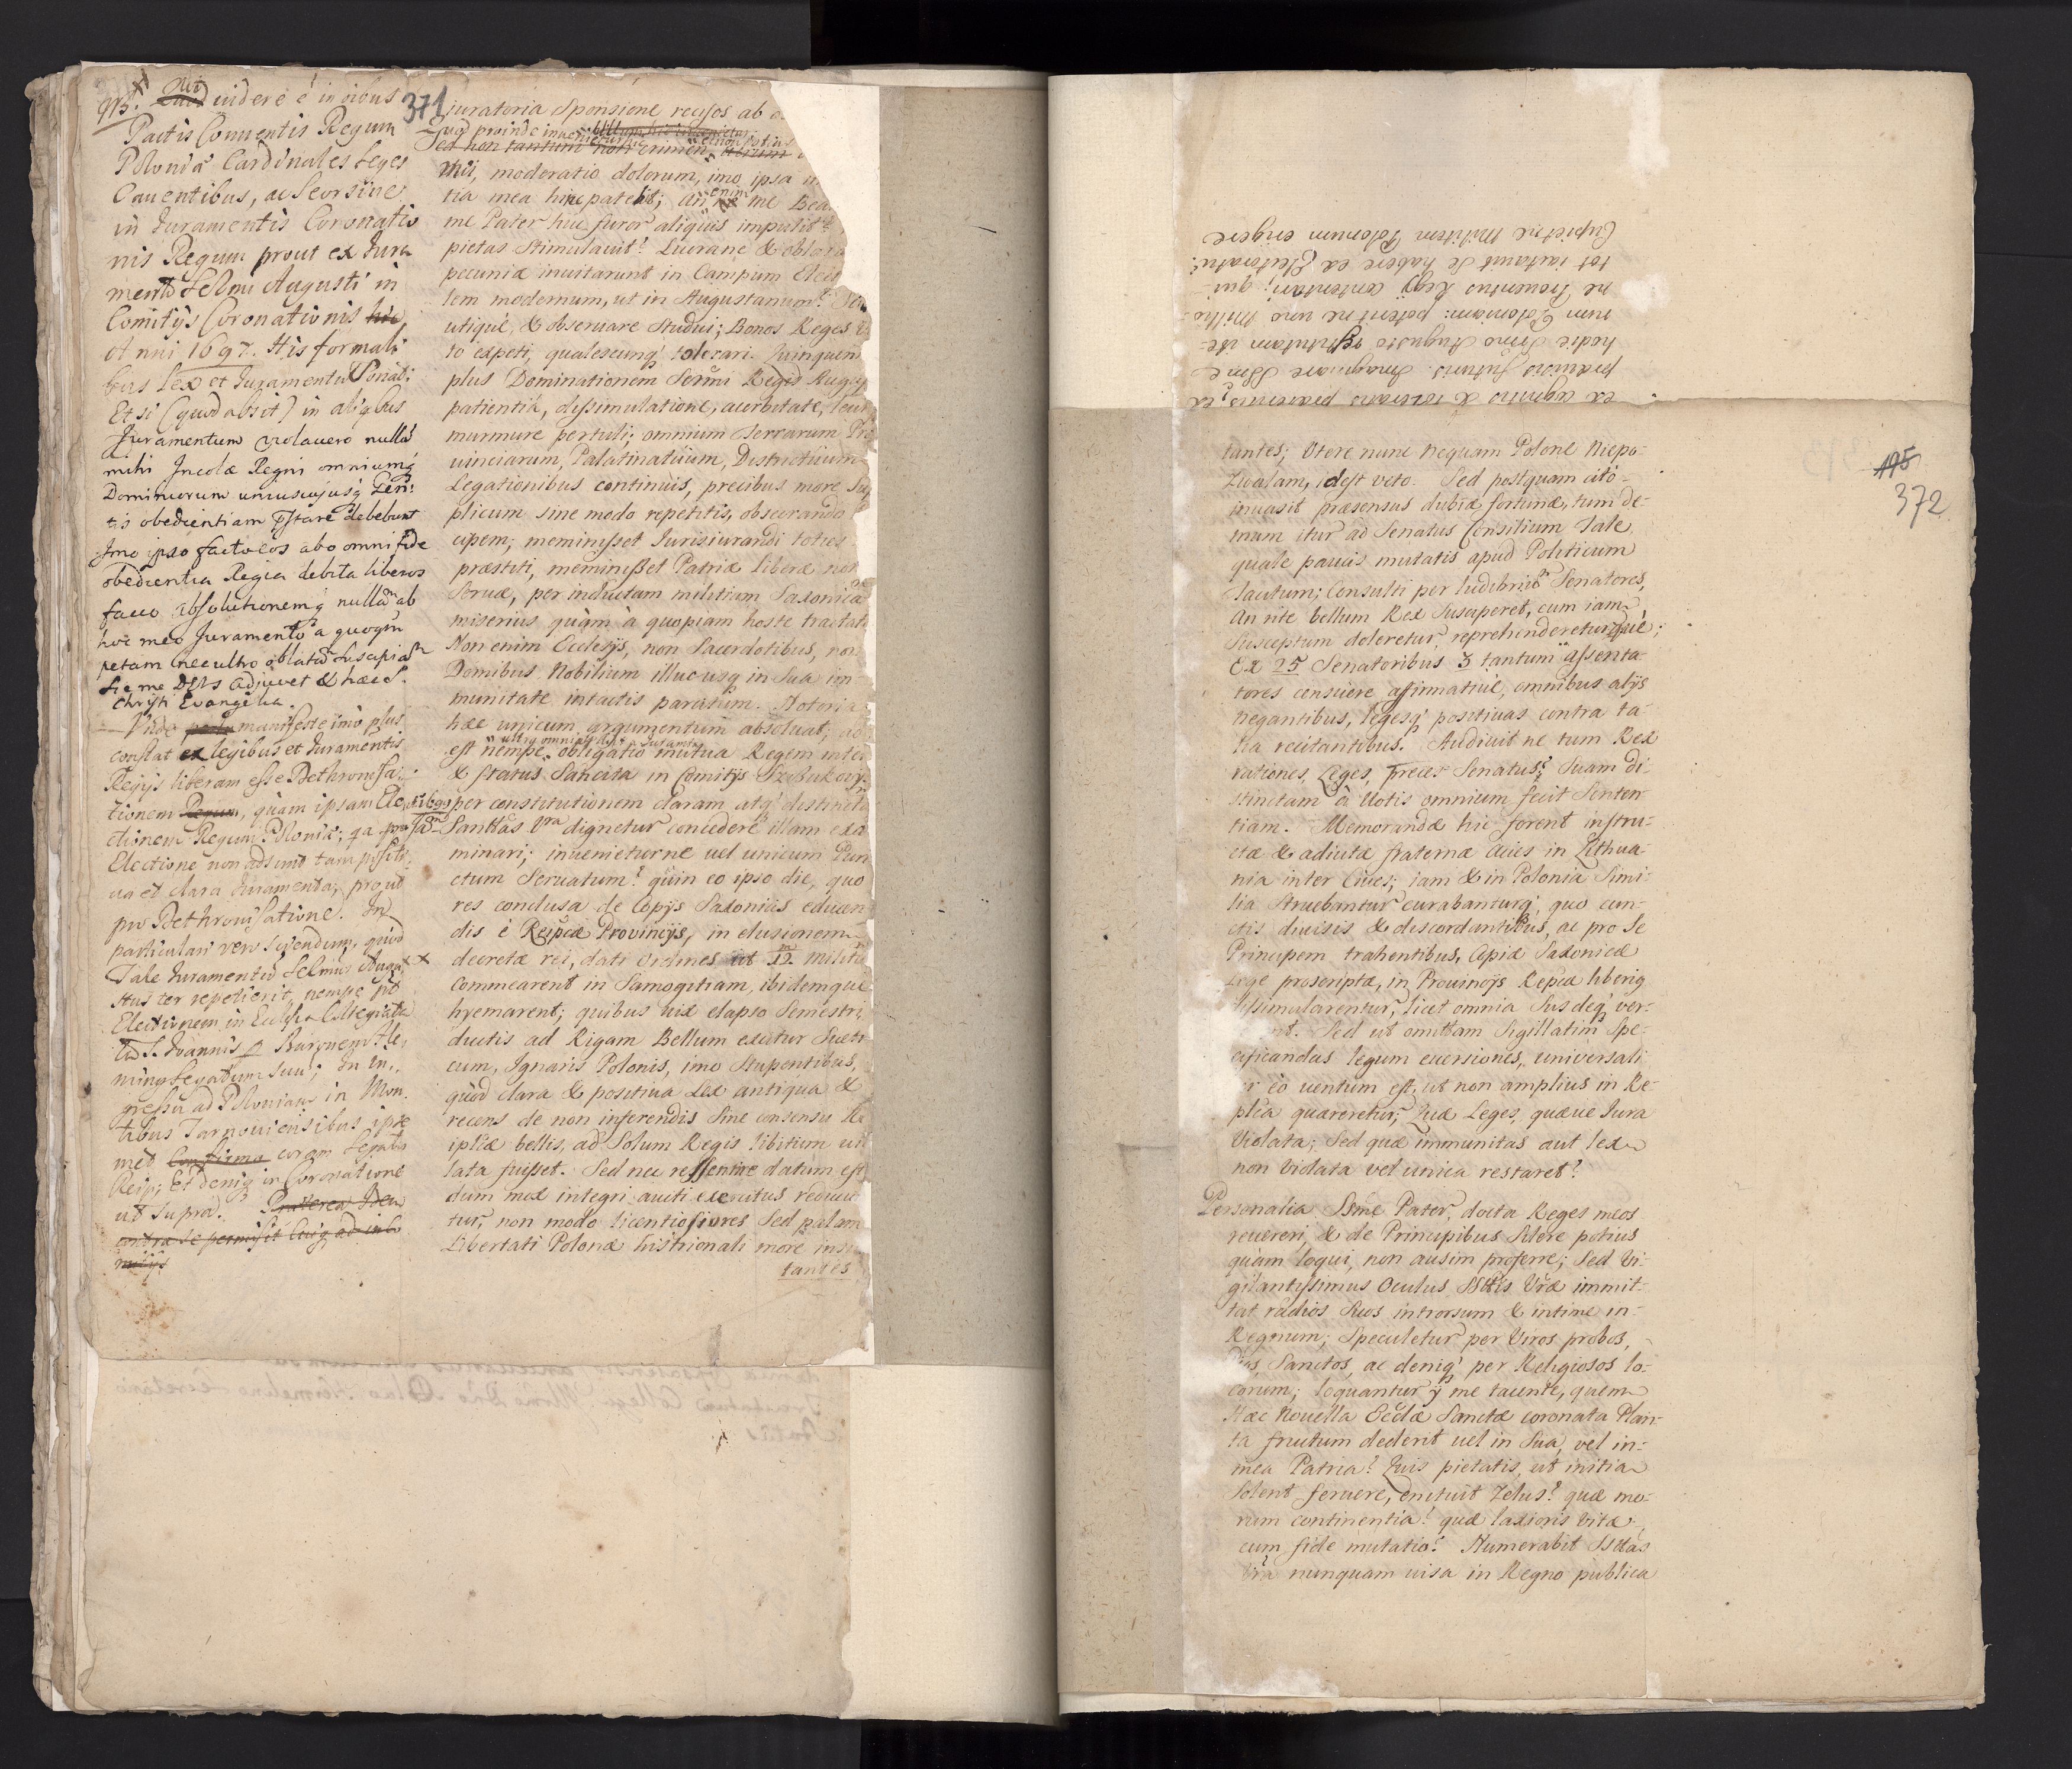 Pactis Conventis Regum
Poloniæ Cardinales Leges
Caventibus, ac Seorsive
in Juramentis Coronatio
nis Regum prout ex Jura
mento Sermi Augusti in
Comitijs Coronationis hic
Anni 1697. His formali
bus lex et Juramentū Sonat:
Et si (quod absit) in aliqbus
Juramentum violavero nullā
mihi Incolæ Regni omniumq
Dominiorum uniuscujusq Gen:
tis obedientiam pstare debebunt
Imo ipso facto eos ab omni fide
obedientia Regia debita liberos
facio absolutionemq nullam ab
hoc meo Juramento a quoqm
petam nec ultro oblatā suscipiam
Sic me DEUS adjuvet & hæc S.
Christi Evangelia.
Vnde manifeste imò plus
constat ex legibus et Juramentis
Regijs liberam esse Dethronisa:
tionem Regum, quàm ipsam Ele
ctionem Regum Poloniæ; qa pro
Electione non adsunt tam positi
va et clara Juramenta, prout
pro Dethronisatione. In
particulari vero sciendum, quod
Tale Juramentū Sermus Augu
stus ter repetierit, nempe pt
Electionem in Ecclesia Collegiata
S. Joannis p Baronem Fle
ming Legatum suū; In in
gressu ad Poloniam in Mon
tibus Tarnoviensibus ipse
met Confirma coram Legatis
Reip; Et deniq in Coronatione
ut supra. Præterea
contra se permisit
371
juratoria Sponsione recisos ab
Quod proinde
Sed non tantum non crimen,
mei, moderatio dolorum, imo ipsa
tia mea hinc patebit; an enim me Bea
me Pater huc furor aliquis impulit?
pietas Stimulavit? Lucrane & oblatæ
pecuniæ invitarunt in Campum
lem modernum, ut in Augustanum?
utique, & observare Studui; Bonos Reges
to expeti, qualescunq tolerari. Quinquen
plus Dominationem Sermi Regis Augus
patientiâ, dissimulatione, acerbitate,
murmure pertuli; omnium terrarum Pro
vinciarum, Palatinatuum, Districtuum
Legationibus continuis, precibus more Sup
plicum sine modo repetitis, obsecrando
cipem; meminisset Jurisiurandi toties
præstiti, meminisset Patriæ liberæ non
Servæ, per inductam militiam Saxonicam
miserius quàm à quopiam hoste tractatæ
Non enim Ecclesijs, non Sacerdotibus, non
Domibus Nobilium illucusq in Sua im
munitate intactis parcitum. Notoria
hæc unicum argumentum absolvat;
est nempe obligatio mutua Regem inter
& status Sancita in Comitijs
per constitutionem claram atq distinctam
Sanctitas Vra dignetur concedere illam exa
minari; invenieturne vel unicum Pun
ctum Servatum? quin eo ipso die, quo
res conclusa de Copijs Saxonicis educen
dis è Reipcæ Provincijs, in elusionem
decretæ rei, dati Ordines ut 12 militum
Commearent in Samogitiam, ibidemque
hyemarent; quibus vix elapso Semestri
ductis ad Rigam Bellum excitur Sveti
cum, Ignaris Polonis, imo Stupentibus,
quòd clara & positiva Lex antiqua &
recens de non inferendis Sine consensu Re
iplcæ bellis, ad Solum Regis libitum vio
lata fuisset. Sed nec ressentire datum est
dum mox integri aucti exercitus reducun
tur, non modo licentiosiores Sed palam
Libertati Polonæ histrionali more insul
tantes
Cupiet ne Militem Polonum erigere
tot iactavit Se habere ex Electoratu;
ne Proventus Regij contentari; qui
num Poloniam: poterit ne uno Millio
hodie Srmo Augusto restitutam ite
præviis futuris. Imaginare Ssme
ex cognitis & toleratis præteritis, ex
tantes; Utere nunc nequam Polone Niepo-
zwalam, idest veto. Sed postquam citò
invasit præsensus dubiæ fortunæ, tum de-
mum itur ad Senatus Consilium tale
quale paucis mutatis apud Politicum
Tacitum; Consulti per ludibriū Senatores,
An rite bellum Rex Susciperet, cum iam
Susceptum doleretur, reprehendereturque;
Ex 25 Senatoribus 3 tantum assenta-
tores censuere affirmative, omnibus alijs
negantibus, legesq positivas contra ta-
lia recitantibus. Audivit ne tum Rex
rationes, Leges, preces Senatus? Suam di-
stinctam à Votis omnium fecit Senten-
tiam. Memorandæ hic forent instru-
ctæ & adiutæ fraternæ acies in Lithua-
nia inter Cives; iam & in Polonia Simi-
lia Struebantur curabanturq, quo cun-
ctis divisis & discordantibus, ac pro Se
Principem trahentibus, Copiæ Saxonicæ
Lege proscriptæ, in Provincijs Repcæ liberiq
dissimularentur, licet omnia Susdeq ver-
Sed ut omittam Sigillatim Spe-
cificandas legum eversiones, universali
eò ventum est, ut non amplius in Re-
plca quæreretur; Quæ Leges, quæve Jura
Violata; Sed quæ immunitas aut lex
non Violata vel unica restaret?
Personalia Ssme Pater, docta Reges meos
revereri, & de Principibus Silere potius
quàm loqui, non ausim proferre; Sed Vi-
gilantissimus Oculus Sttis Vræ immit-
tat radios Suos introrsum & intime in
Regnum; Speculetur per Viros probos,
Sanctos, ac deniq per Religiosos lo-
corum; loquantur ij me tacente, quem
Hæc Novella Ecclæ Sanctæ coronata Plan-
ta fructum dederit vel in Sua, vel in
mea Patria? Quis pietatis, ut initia
Solent fervere, enituit Zelus? quæ mo-
rum continentia? quæ laxioris Vitæ
cum fide mutatio? Numerabit Sttas
Vra nunquam visa in Regno publica
195
372